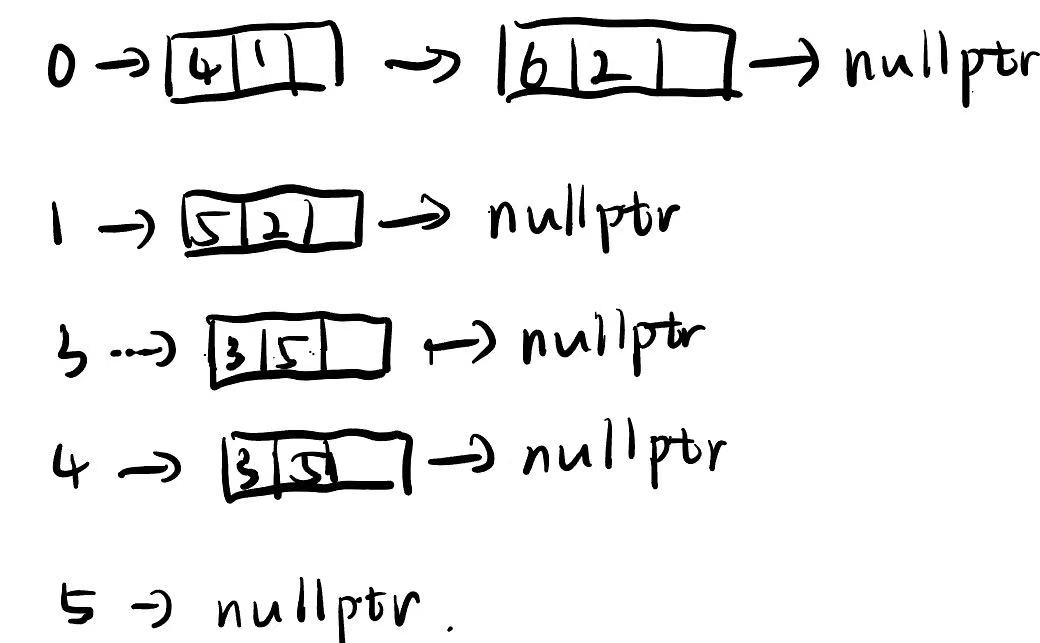 0 → 4 1 → 6 2 → nullptr
1 → 5 2 → nullptr
3 → 3 5 → nullptr
4 → 3 5 → nullptr
5 → nullptr.